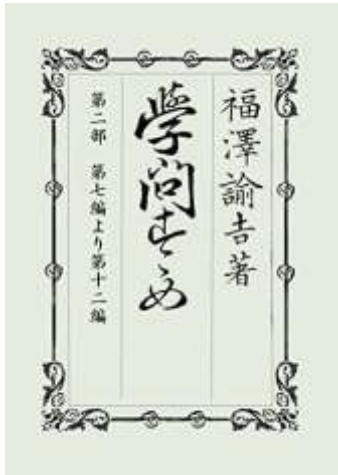 福澤諭吉著
學問すゝめ
第二部 第七編より第十二編